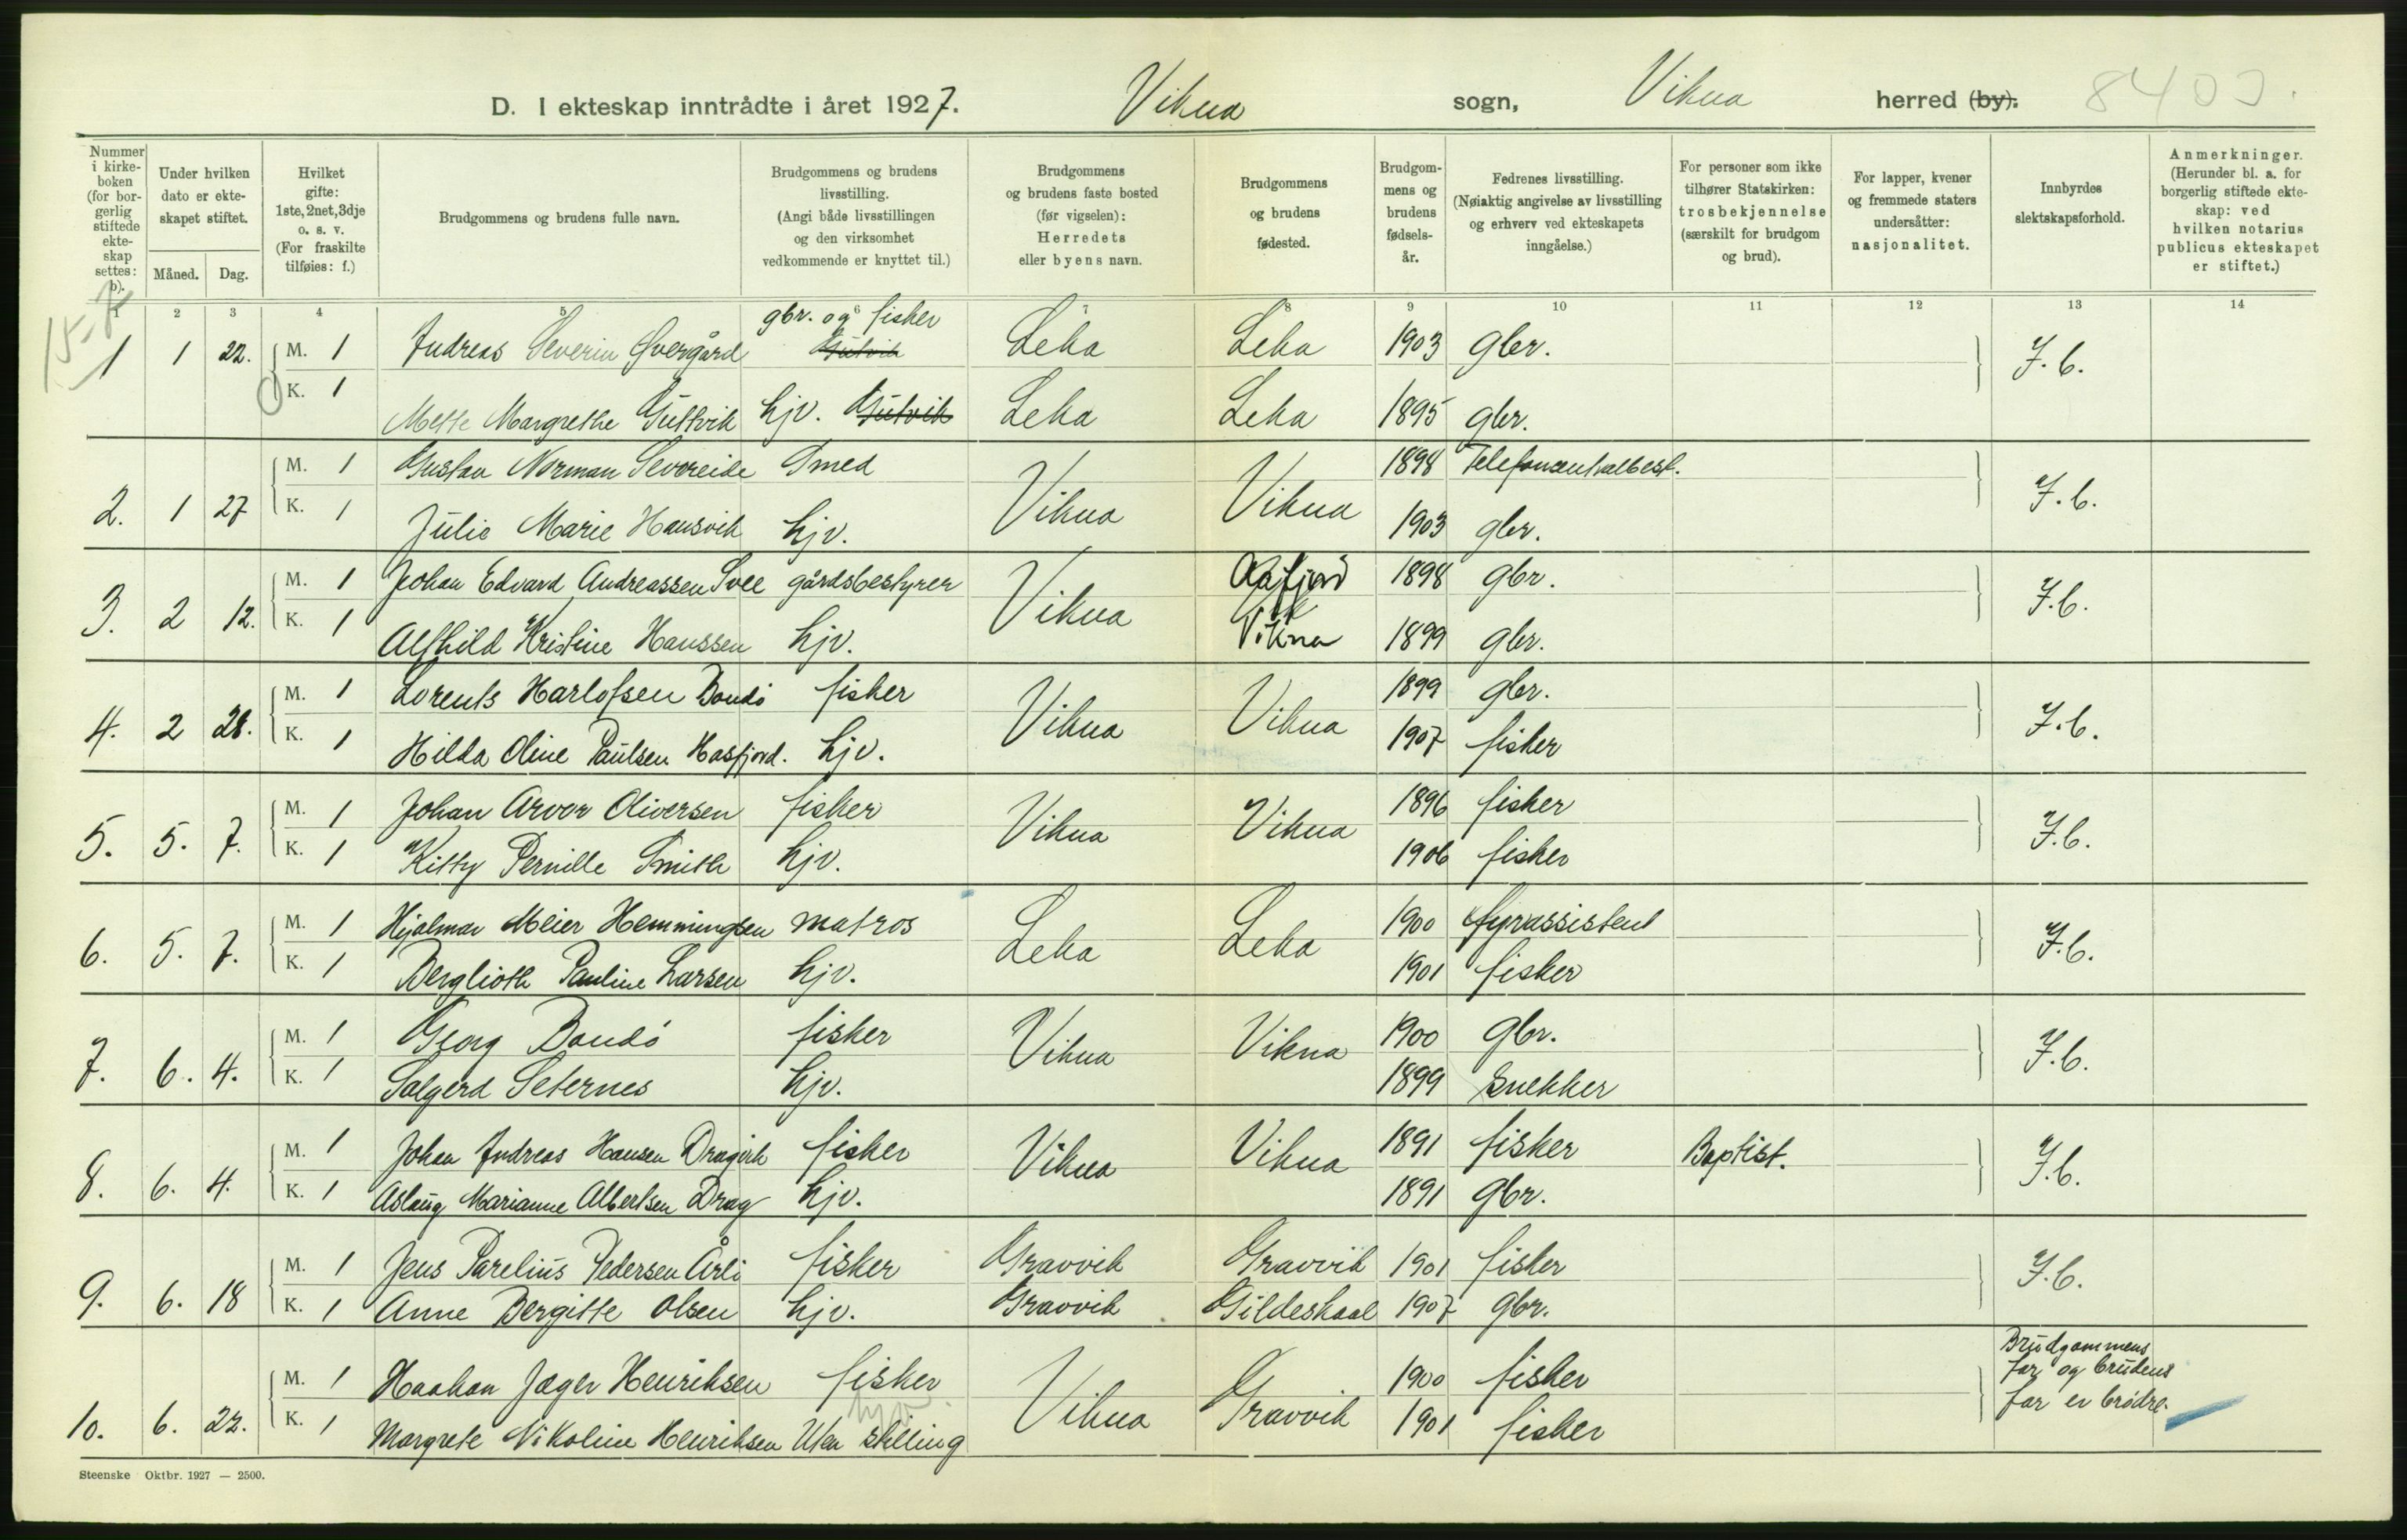 D. I ekteskap inntrådte i året 1927. Vikna sogn, Vikna herred (by).
8403.
Nummer i kirkeboken (for borgerlig stiftede ekteskap settes: b).
Under hvilken dato er ekteskapet stiftet.
Måned. Dag.
Hvilket gifte: 1ste, 2net, 3dje o. s. v. (For fraskilte tilføies: f.)
Brudgommens og brudens fulle navn.
Brudgommens og brudens livsstilling. (Angi både livsstillingen og den virksomhet vedkommende er knyttet til.)
Brudgommens og brudens faste bosted (før vigselen): Herredets eller byens navn.
Brudgommens og brudens fødested.
Brudgommens og brudens fødselsår.
Fedrenes livsstilling. (Nøiaktig angivelse av livsstilling og erhverv ved ekteskapets inngåelse.)
For personer som ikke tilhører Statskirken: trosbekjennelse (særskilt for brudgom og brud).
For lapper, kvener og fremmede staters undersåtter: nasjonalitet.
Innbyrdes slektskapsforhold.
Anmerkninger. (Herunder bl. a. for borgerlig stiftede ekteskap: ved hvilken notarius publicus ekteskapet er stiftet.)
1 2 3 4 5 6 7 8 9 10 11 12 13 14
15-7
gbr. og fisker
1 1 22. M. 1 Andreas Severin Øvergård Gutvik Leka Leka 1903 gbr. I.b.
K. 1 Mette Margrethe Guttvik hjv. Gutvik Leka Leka 1895 gbr.
2. 1 27 M. 1 Gustav Norman Sevoreide Smed Vikna Vikna 1898 Telefoncentralbest. I.b.
K. 1 Julie Marie Hansvik hjv. 1903 gbr.
3. 2 12. M. 1 Johan Edvard Andreassen Svee gårdsbestyrer Vikna Aafjord 1898 gbr. I.b.
K. 1 Alfhild Kristine Hanssen hjv. Vikna 1899 gbr.
4. 2 28. M. 1 Lorents Harlofsen Bondø fisker Vikna Vikna 1899 gbr. I.b.
K. 1 Hilda Oline Paulsen Hasfjord. hjv. 1907 fisker
5. 5. 7. M. 1 Johan Arvor Oliversen fisker Vikna Vikna 1896 fisker I.b.
K. 1 Kitty Pernille Smith hjv. 1906 fisker
6. 5. 7. M. 1 Hjalmar Meier Hemmingsen matros Leka Leka 1900 fyrassistent I.b.
K. 1 Berglioth Pauline Larsen hjv. 1901 fisker
7. 6. 4. M. 1 Georg Bondø fisker Vikna Vikna 1900 gbr. I.b.
K. 1 Salgerd Seternes hjv. 1899 snekker
8. 6. 4. M. 1 Johan Andreas Hansen Dragvik fisker Vikna Vikna 1891 fisker Baptist. I.b.
K. 1 Aslaug Marianne Albertsen Drag hjv. 1891 gbr.
9. 6. 18 M. 1 Jens Parelius Pedersen Årli fisker Gravvik Gravvik 1901 fisker I.b.
K. 1 Anne Bergitte Olsen hjv. Gravvik Gildeskaal 1907 gbr.
10. 6. 22. M. 1 Haakon Jæger Henriksen fisker Vikna Gravvik 1900 fisker Brudgommens far og brudens far er brødre.
hjv.
K. 1 Margrete Nikoline Henriksen Uten stilling 1901 fisker
Steenske Oktbr. 1927 — 2500.